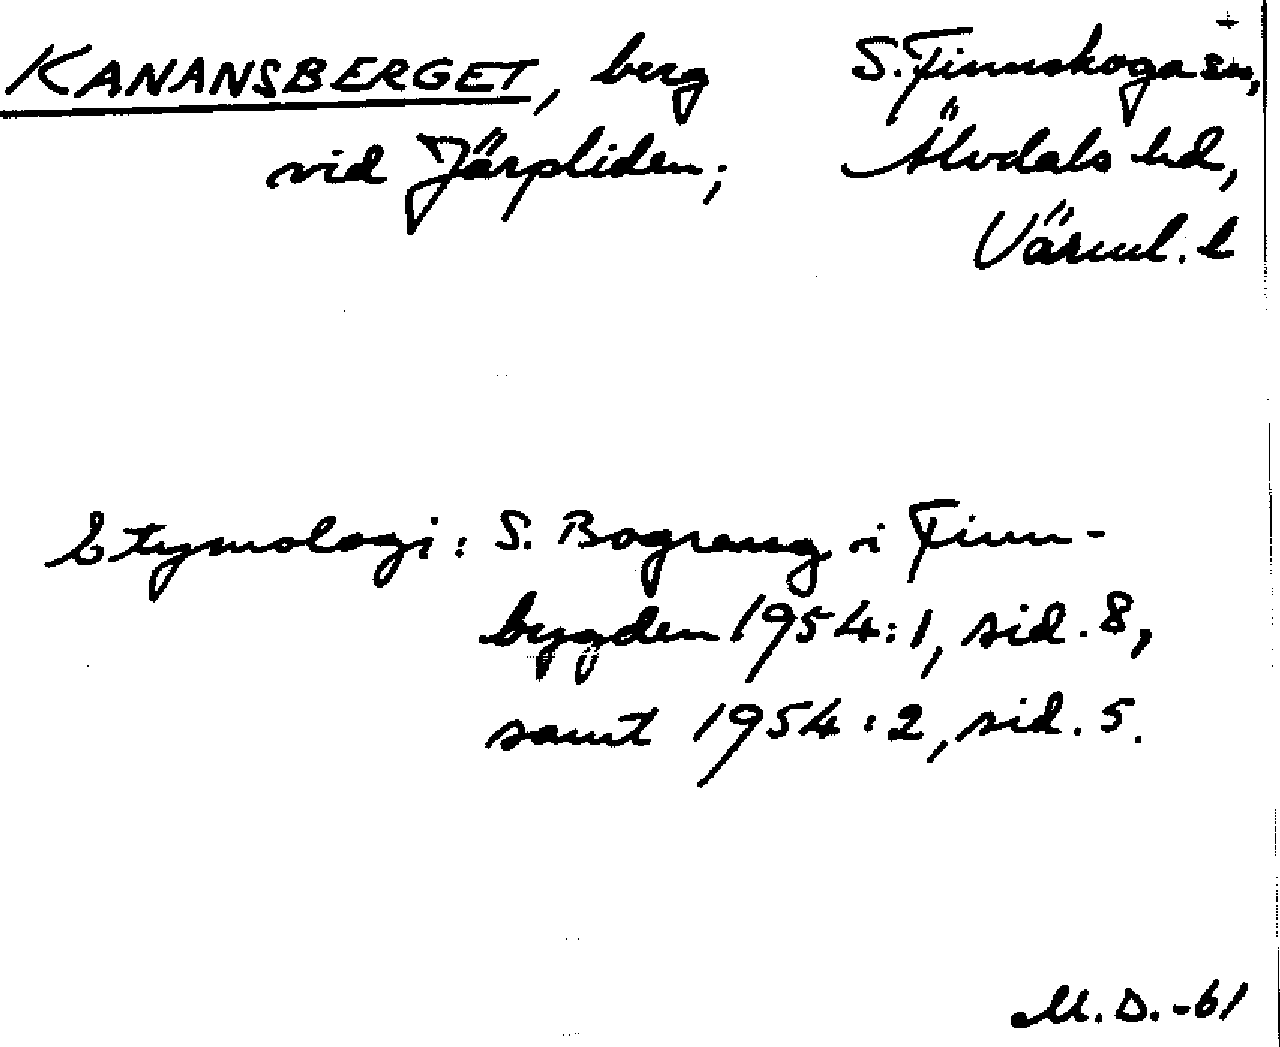 KANANSBERGET, berg S. Finnskoga sn,
vid Järpliden; Älvdals hd,
Värml. l
Etymologi: S. Bograng i Finn-
bygden 1954:1, sid. 8,
samt 1954:2, sid. 5.
M.D.-61